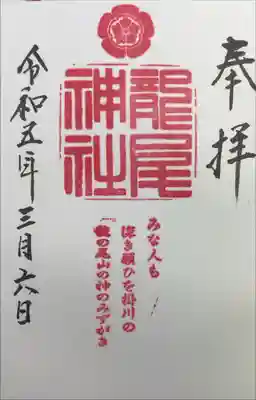 奉拝
龍尾
神社
みな人も
深き願ひを掛川の
龍の尾山の神のみずがき
令和五年三月六日